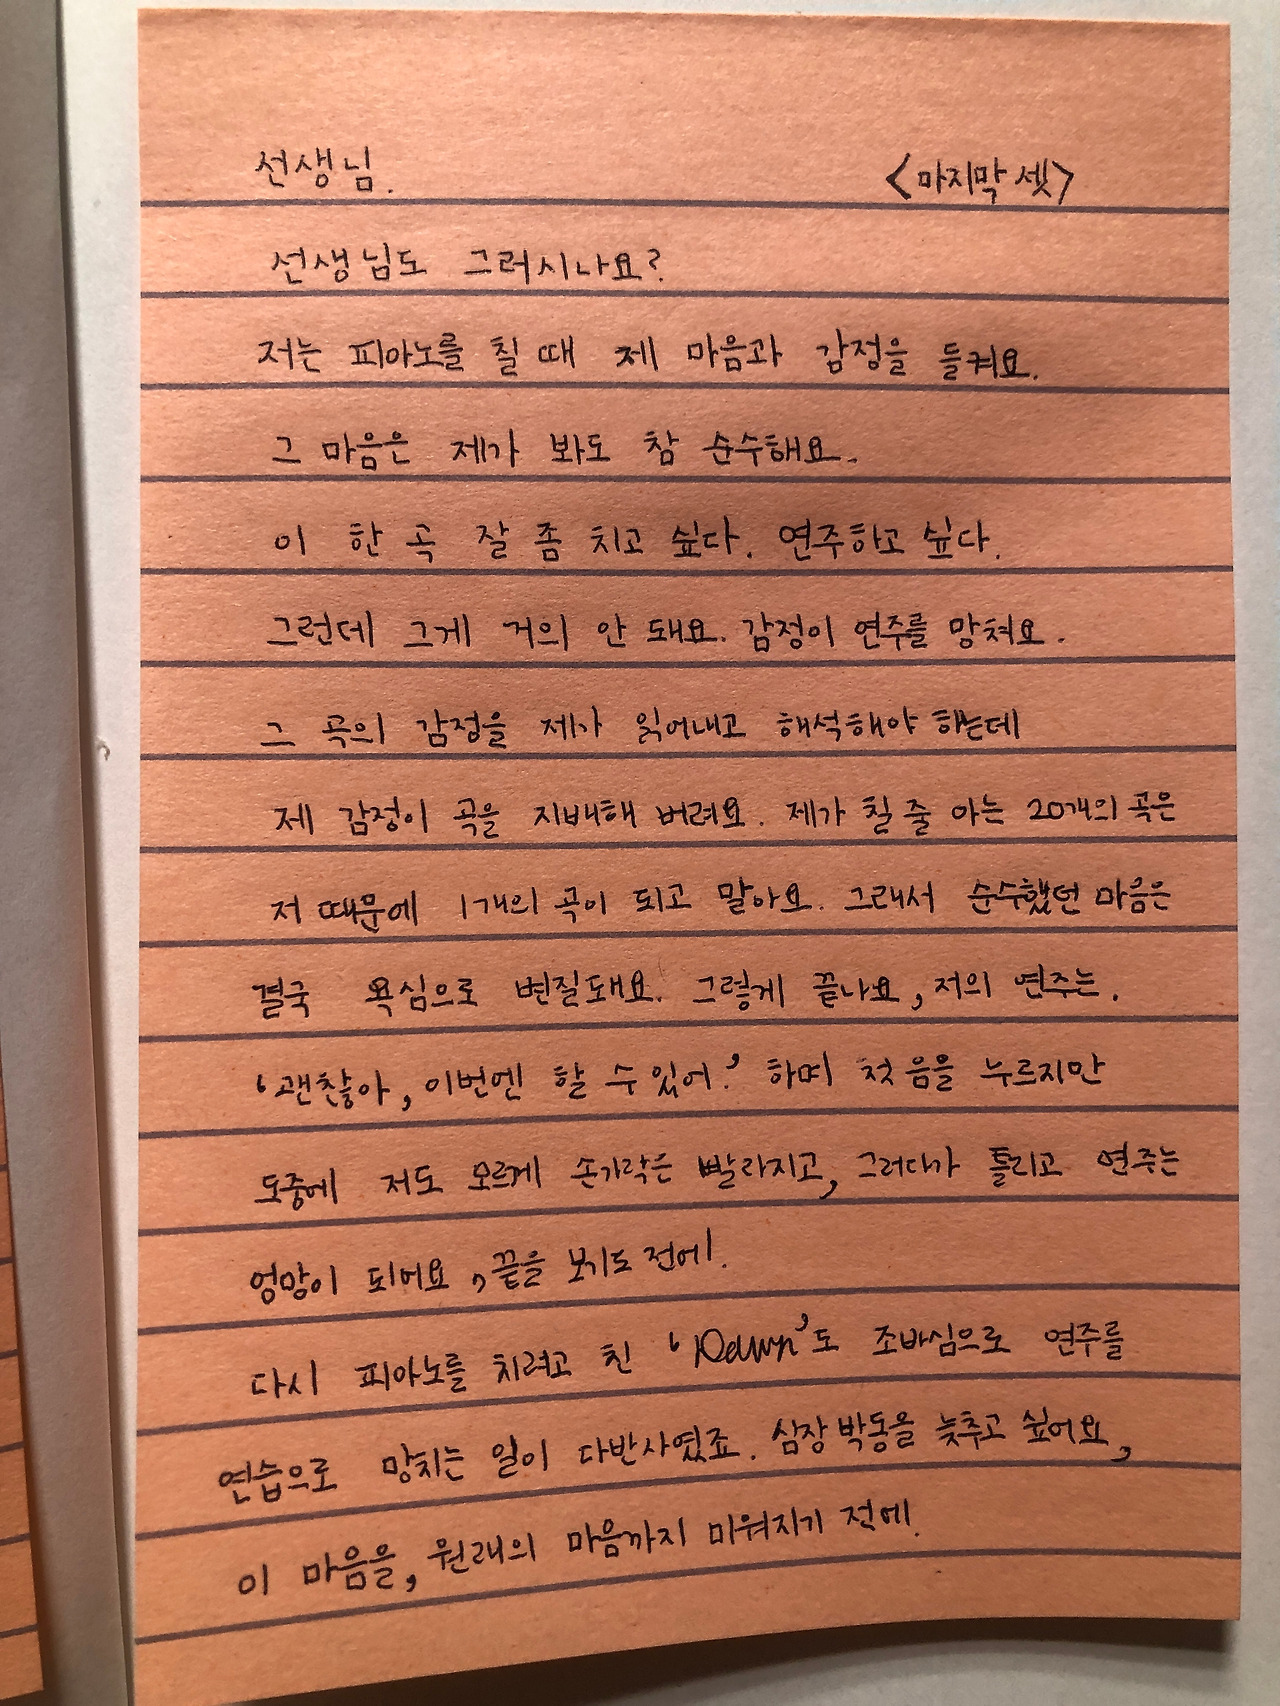 선생님. <마지막 셋>
선생님도 그러시나요?
저는 피아노를 칠 때 제 마음과 감정을 들켜요.
그 마음은 제가 봐도 참 순수해요.
이 한 곡 잘 좀 치고 싶다. 연주하고 싶다.
그런데 그게 거의 안 돼요. 감정이 연주를 망쳐요.
그 곡의 감정을 제가 읽어내고 해석해야 하는데
제 감정이 곡을 지배해 버려요. 제가 칠 줄 아는 20개의 곡은
저 때문에 1개의 곡이 되고 말아요. 그래서 순수했던 마음은
결국 욕심으로 변질돼요. 그렇게 끝나요, 저의 연주는.
'괜찮아, 이번엔 할 수 있어.' 하며 첫 음을 누르지만
도중에 저도 모르게 손가락은 빨라지고, 그러다가 틀리고 연주는
엉망이 되어요, 끝을 보기도 전에.
다시 피아노를 치려고 친 'Dawn'도 조바심으로 연주를
연습으로 망치는 일이 다반사였죠. 심장 박동을 늦추고 싶어요,
이 마음을, 원래의 마음까지 미워지기 전에.